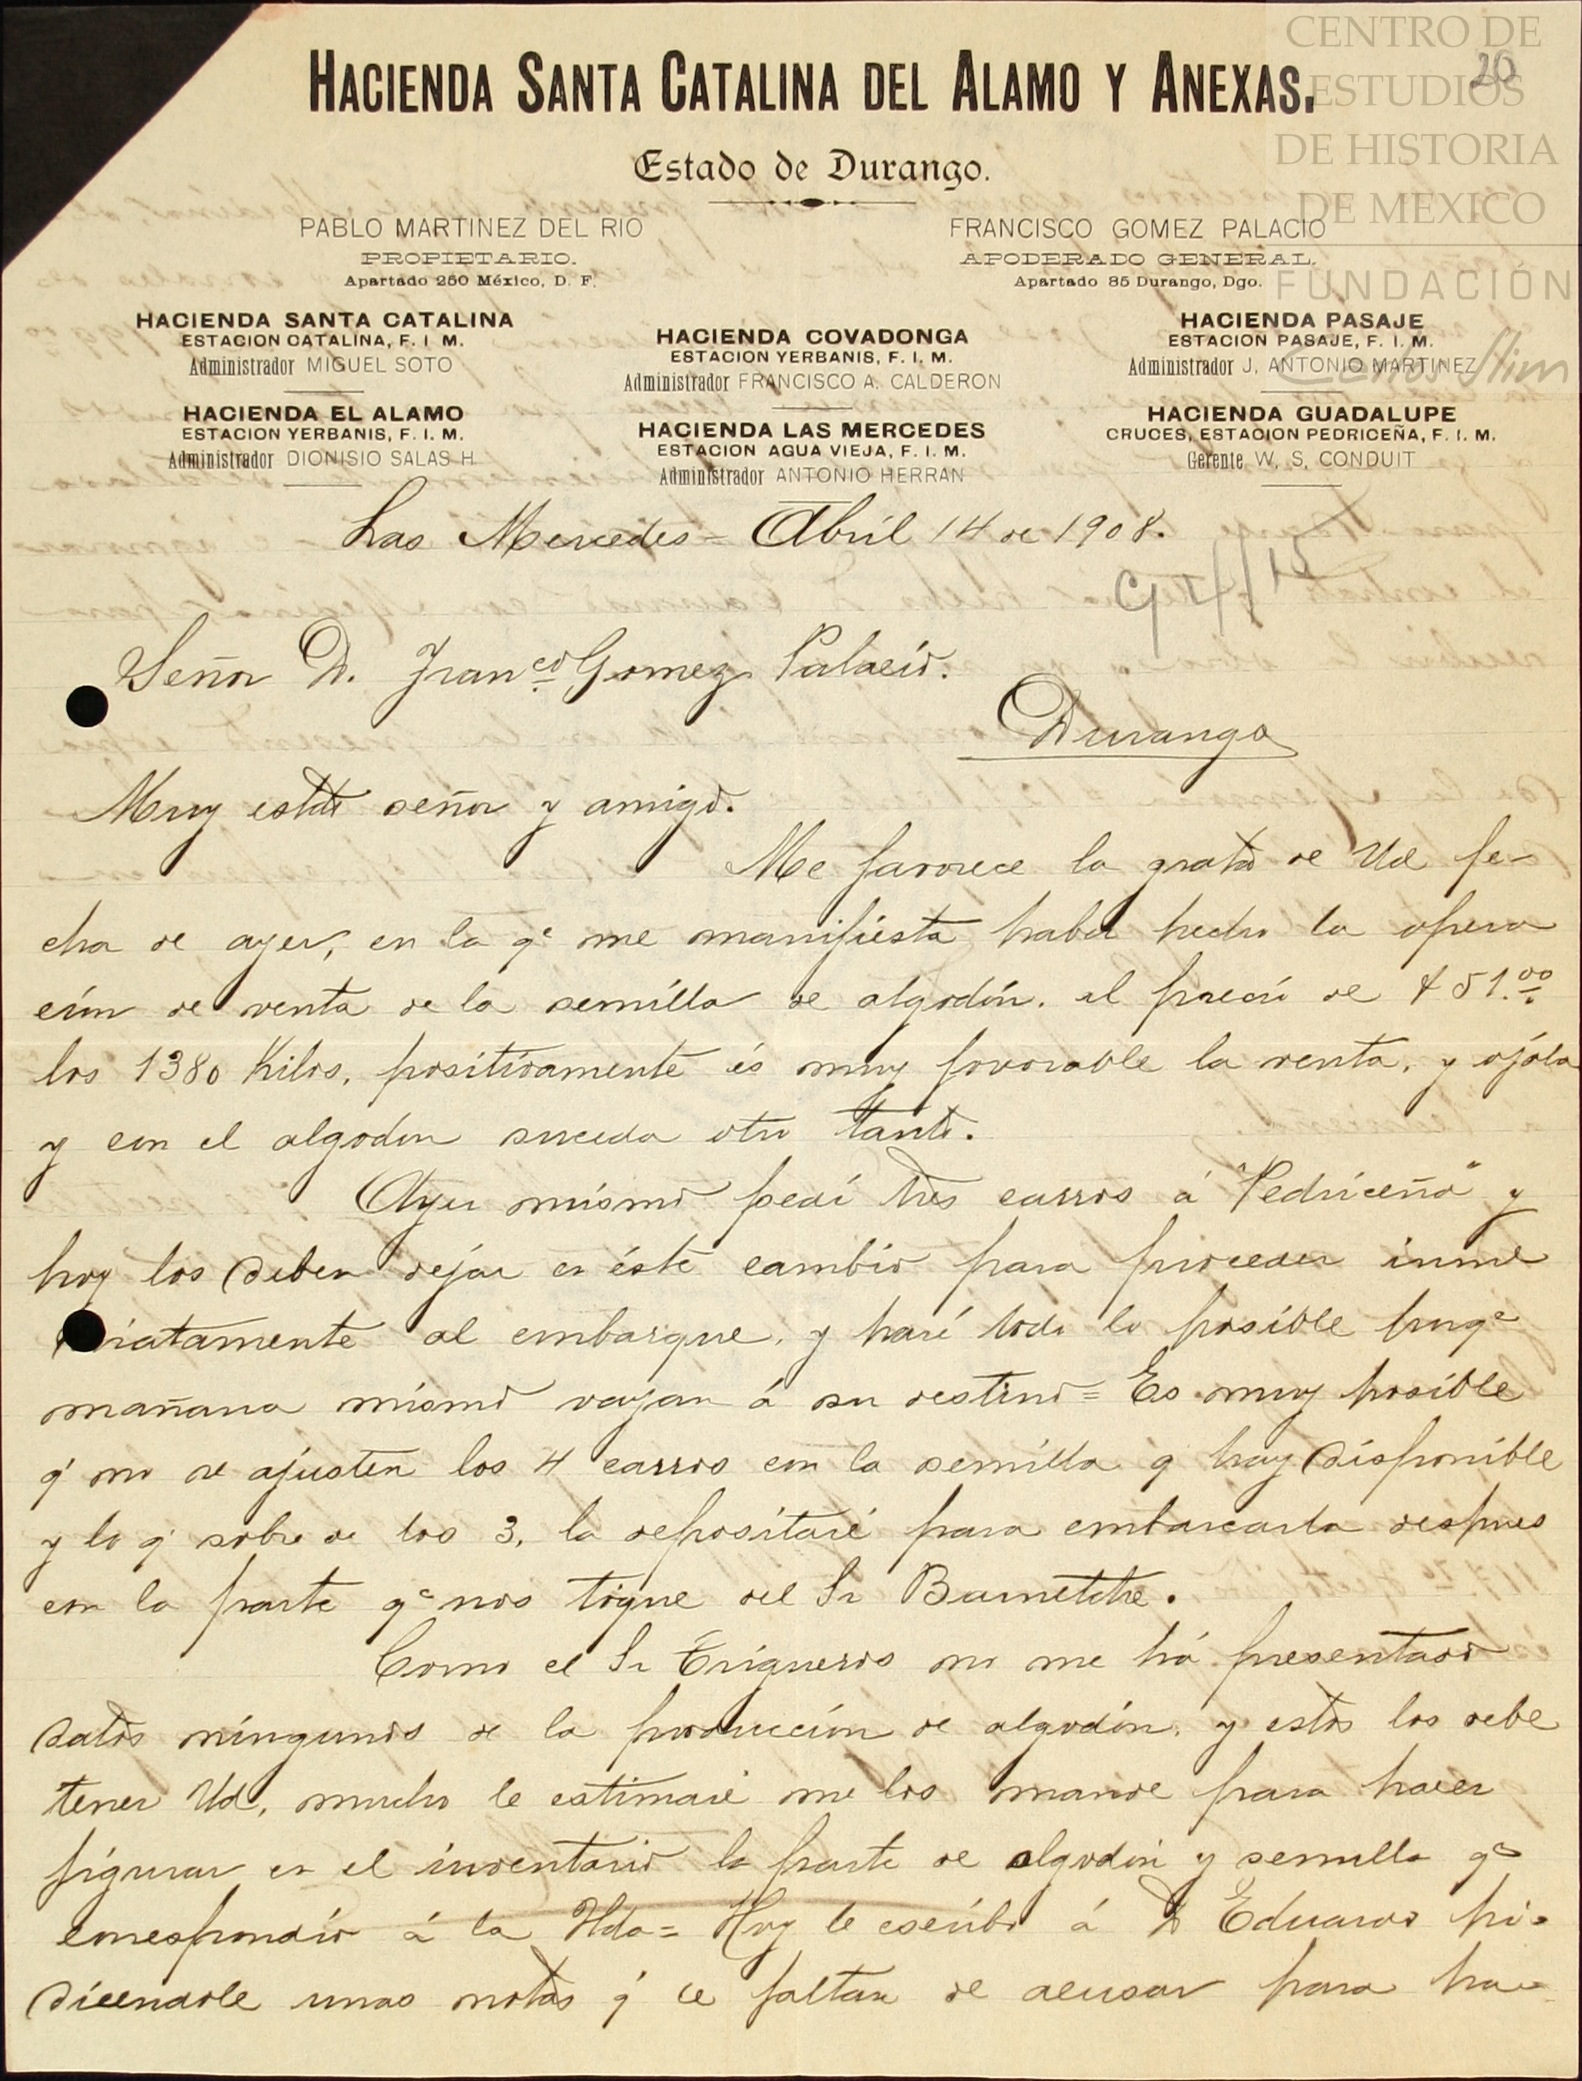 CENTRO DE
ESTUDIOS
DE HISTORIA
DE MEXICO
FUNDACIÓN
Carlos Slim
20
HACIENDA SANTA CATALINA DEL ALAMO Y ANEXAS.
Estado de Durango.
PABLO MARTINEZ DEL RIO
PROPIETARIO.
Apartado 250 México, D. F.
FRANCISCO GOMEZ PALACIO
APODERADO GENERAL.
Apartado 85 Durango, Dgo.
HACIENDA SANTA CATALINA
ESTACION CATALINA, F. I. M.
Administrador MIGUEL SOTO
HACIENDA EL ALAMO
ESTACION YERBANIS, F. I. M.
Administrador DIONISIO SALAS H.
HACIENDA COVADONGA
ESTACION YERBANIS, F. I. M.
Administrador FRANCISCO A. CALDERON
HACIENDA LAS MERCEDES
ESTACION AGUA VIEJA, F. I. M.
Administrador ANTONIO HERRAN
HACIENDA PASAJE
ESTACION PASAJE, F. I. M.
Administrador J. ANTONIO MARTINEZ
HACIENDA GUADALUPE
CRUCES, ESTACION PEDRICEÑA, F. I. M.
Gerente W. S. CONDUIT
Las Mercedes = Abril 14 de 1908.
Señor D. Franco Gomez Palacio.
Durango
Muy estdo señor y amigo.
Me favorece la grata de Ud fe-
cha de ayer, en la qe me manifiesta haber hecho la opera
ción de venta de la semilla de algodón. al precio de $51.00
los 1380 Kilos, positivamente és muy favorable la venta, y ojóla
y con el algodon suceda otro tanto.
Ayer mismo pedí tres carros á "Pedriceña" y
hoy los deben dejar en éste cambio para proceder inme
diatamente al embarque, y haré todo lo posible porqe
mañana mismo vayan á su destino = Es muy posible
q' no se ajusten los 4 carros con la semilla q hay disponible
y lo q' sobre de los 3, la depositaré para embarcarla despues
con la parte qe nos toque del Sr Burnetche.
Como el Sr Trigueros no me há presentado
datos ningunos de la producción de algodón, y estos los debe
tener Ud, mucho le estimaré me los mande para hacer
figurar en el inventario la parte de algodón y semilla qe
correspondió á la Hda = Hoy le escribo á D Eduardo pi-
diendole unas notas q' le faltan de acusar para ha-